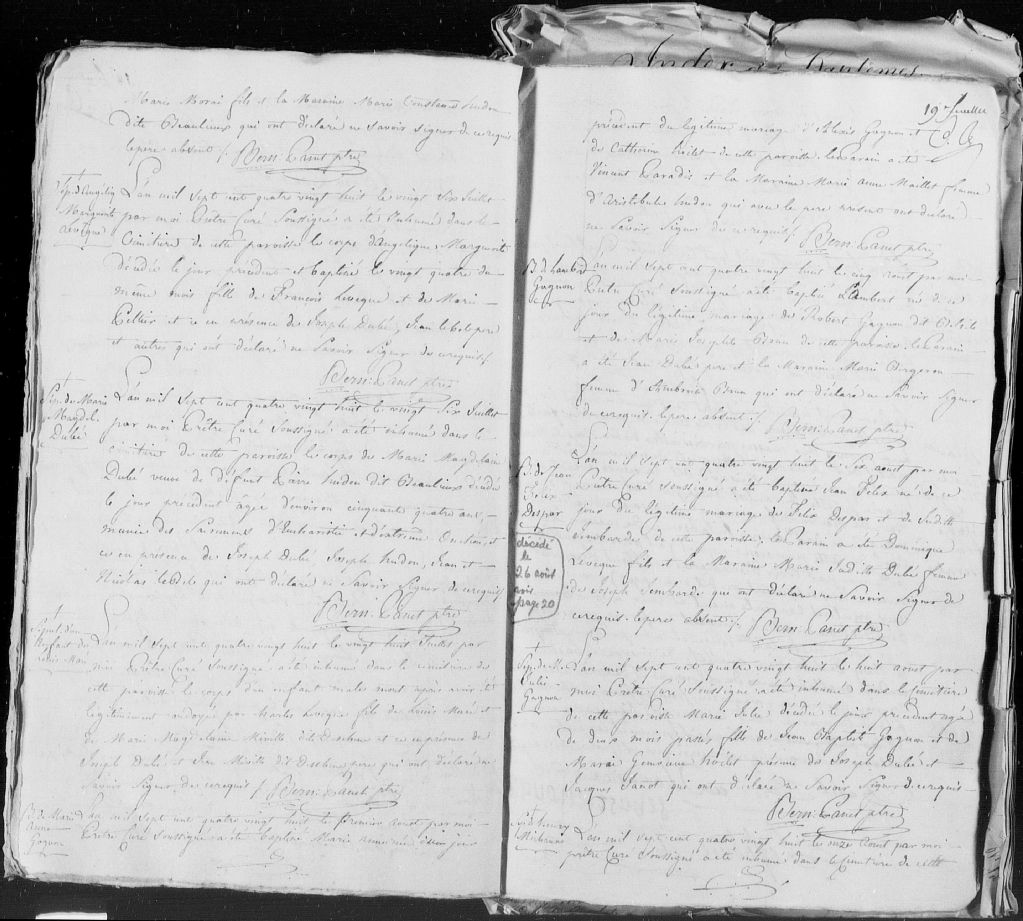 Marie Morai fils et la Maraine Marie Constance hudon
dite Beaulieux qui ont déclaré ne Savoir Signer de ce requis
le pere absent ./. Bern: Panet ptre
Sep. d'Angeliq
Marguerite
Levêque
L'an mil Sept cent quatre vingt huit le vingt Six Juillet
par moi Prêtre Curé Soussigné a été Inhumé dans le
Cimitiere de cette paroisse le corps d'Angelique Marguerite
décédée le jour précédent et baptisée le vingt quatre du
même mois fille de François Leveque et de Marie
Pellier et ce en présence de Joseph Dubé, Jean lebel pere
et autres qui ont déclaré ne Savoir Signer de ce requis ./.
Bern: Panet ptre
Sep. de Marie
Magdel.
Dubée
L'an mil Sept cent quatre vingt huit le vingt Six Juillet
par moi Prêtre Curé Soussigné a été inhumé dans le
cimitiere de cette paroisse le corps de Marie Magdelaine
Dubé veuve de défunt Pierre hudon dit Beaulieux décédée
le jour précédent âgée d'environ cinquante quatre ans,
munie des Sacremens d'Eucharistie et d'extrême Onction, et
ce en présence de Joseph Dubé, Joseph hudon, Jean et
Nicolas lebel qui ont déclaré ne Savoir Signer de ce requis
Bern: Panet ptre
Sepult. d'un
Enfant de
Louis
L'an mil Sept cent quatre vingt huit le vingt huit Juillet par
moi Prêtre Curé Soussigné a été inhumé dans le cimitiere de
cette paroisse le corps d'un enfant mâle mort après avoir été
légitimement ondoyé par Charles Leveque fils de Louis
et de Marie Magdelaine Miville dit Deschene et ce en présence de
Joseph Dubé et Jean Miville dit Deschene pere qui ont déclaré ne
Savoir Signer de ce requis ./. Bern: Panet ptre
B. de Marie
Anne
Gagnon
L'an mil Sept cent quatre vingt huit le premier aout par moi
Prêtre Curé Soussigné a été baptisée Marie anne née d'un jour
Index des Baptêmes.
19e feuillet
précédent du légitime mariage d'Alexis Gagnon et
de Catherine de cette paroisse. Le Parain a été
Vincent Paradis et la Maraine Marie anne Maillet femme
d'Aristobule hudon qui avec le pere present ont déclaré
ne Savoir Signer de ce requis ./. Bern: Panet ptre
B. de Lambert
Gagnon
L'an mil Sept cent quatre vingt huit le cinq aout par moi
Prêtre Curé Soussigné a été baptisé Lambert né de ce
jour du légitime mariage de Robert Gagnon dit
et de Marie Josephte de cette paroisse. Le Parain
a été Jean Dubé pere et la Maraine Marie Bergeron
femme d'Ambroise qui ont déclaré ne Savoir Signer
de ce requis. le pere absent ./. Bern: Panet ptre
B. de Jean
Felix
Despar
décédé
le
26 août
voir
page 20
L'an mil Sept cent quatre vingt huit le Six aout par moi
Prêtre Curé Soussigné a été baptisé Jean Felix né de ce
jour du légitime mariage de Felix Despar et de Judith
de cette paroisse. Le Parain a été Dominique
Leveque fils et la Maraine Marie Judithe Dubé femme
de Joseph qui ont déclaré ne Savoir Signer de
ce requis. le pere absent ./. Bern: Panet ptre
Sep. de M.
Julie
Gagnon
L'an mil Sept cent quatre vingt huit le huit aout par
moi Prêtre Curé Soussigné a été inhumé dans le cimitiere
de cette paroisse Marie Julie décédée le jour précédent agée
de deux mois passés, fille de Jean Baptiste Gagnon et de
Marie Genevieve présence de Joseph Dubé et
Jacques qui ont déclaré ne Savoir Signer de ce requis
Bern: Panet ptre
S. d. henry
Michaud
L'an mil Sept cent quatre vingt huit le onze aout par moi
prêtre Curé Soussigné a été inhumé dans le cimitiere de cette